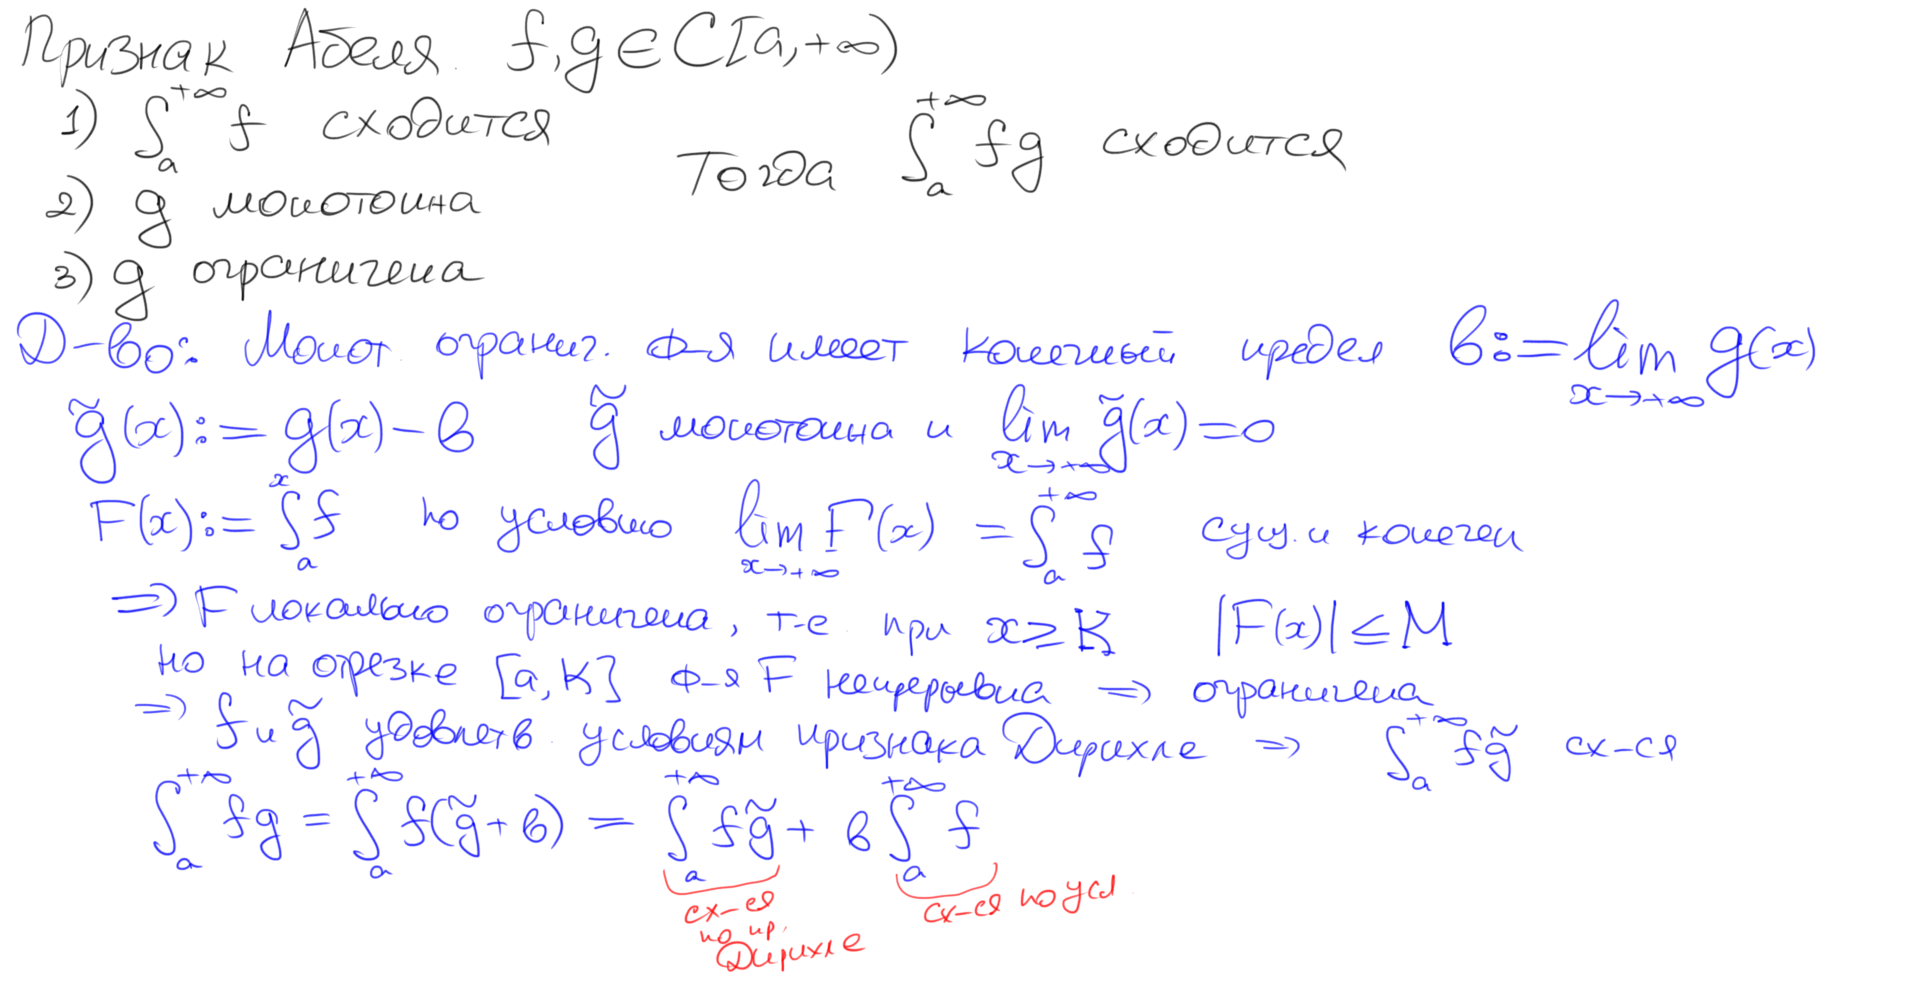 Признак Абеля. f, g ∈ C[a, +∞)
1) ∫_a^{+∞} f сходится
2) g монотонна
3) g ограничена
Тогда ∫_a^{+∞} fg сходится
Д-во: Монот. огранич. ф-я имеет конечный предел b := lim_{x→+∞} g(x)
g̃(x) := g(x) − b g̃ монотонна и lim_{x→+∞} g̃(x) = 0
F(x) := ∫_a^x f по условию lim_{x→+∞} F(x) = ∫_a^{+∞} f сущ. и конечен
⇒ F локально ограничена, т-е при x ≥ K |F(x)| ≤ M
но на отрезке [a, K] ф-я F непрерывна ⇒ ограничена
⇒ f и g̃ удовлетв. условиям признака Дирихле ⇒ ∫_a^{+∞} fg̃ сх-ся
∫_a^{+∞} fg = ∫_a^{+∞} f(g̃ + b) = ∫_a^{+∞} fg̃ + b ∫_a^{+∞} f
сх-ся
по пр.
Дирихле
сх-ся по усл